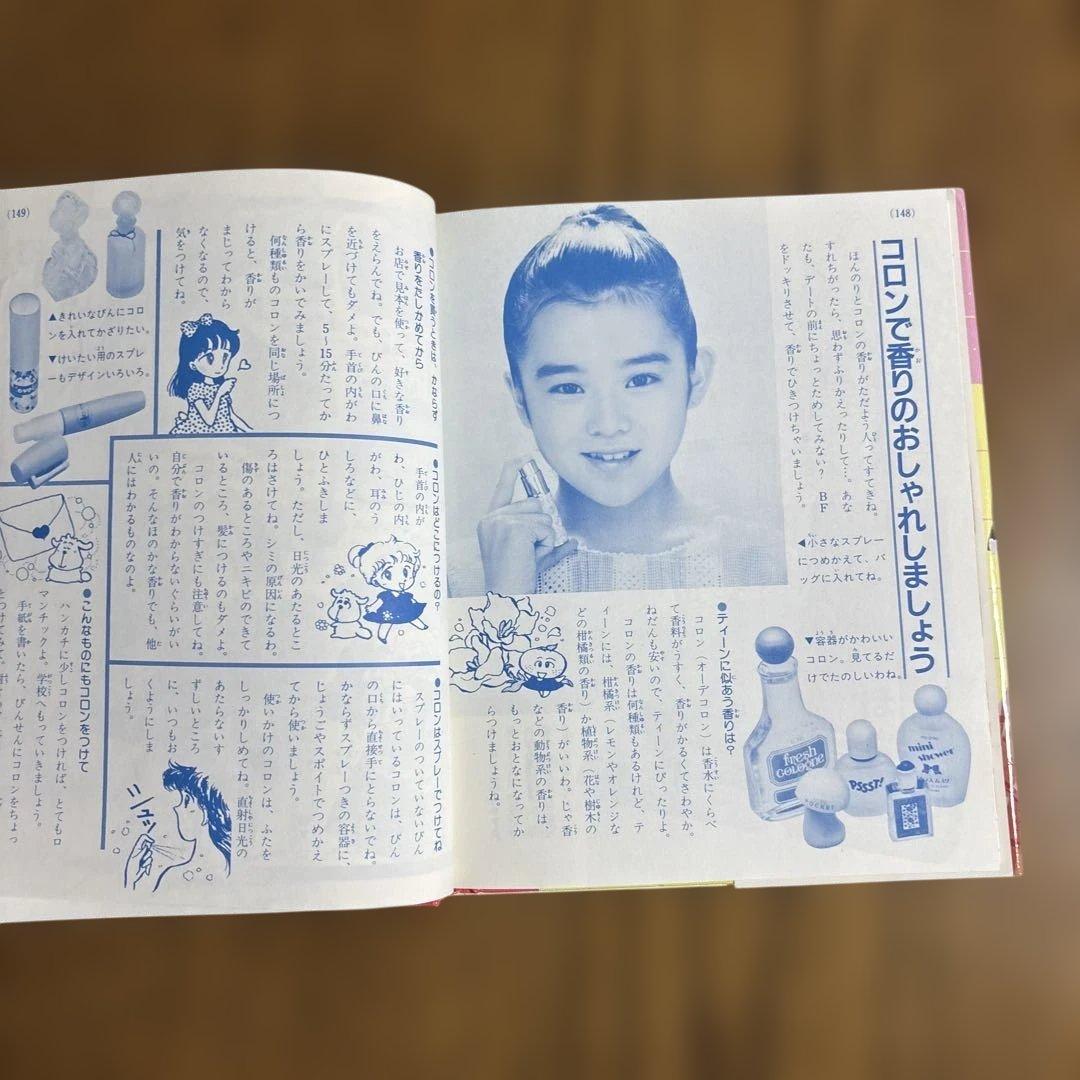 (148)
コロンで香りのおしゃれしましょう
ほんのりとコロンの香りがただよう人ってすてきね。
すれちがったら、思わずふりかえったりして…。あな
たも、デートの前にちょっとためしてみない? BF
をドッキリさせて、香りでひきつけちゃいましょう。
◀小さなスプレー
につめかえて、バ
ッグに入れてね。
▼容器がかわいい
コロン。見てるだ
けでたのしいわね。
fresh
COLOGNE
PSSST!
mini
shower
POCKET
●ティーンに似あう香りは?
コロン(オーデコロン)は香水にくらべ
て香料がうすく、香りがかるくてさわやか。
ねだんも安いので、ティーンにぴったりよ。
コロンの香りは何種類もあるけれど、テ
ィーンには、柑橘系(レモンやオレンジな
どの柑橘類の香り)か植物系(花や樹木の
香り)がいいわ。じゃ香
などの動物系の香りは、
もっとおとなになってか
らつけましょうね。
(149)
●コロンを買うときは、かならず
香りをたしかめてから
お店で見本を使って、好きな香り
をえらんでね。でも、びんの口に鼻
を近づけてもダメよ。手首の内がわ
にスプレーして、5〜15分たってか
ら香りをかいでみましょう。
何種類ものコロンを同じ場所につ
けると、香りが
まじってわから
なくなるので、
気をつけてね。
▲きれいなびんにコロ
ンを入れてかざりたい。
▼けいたい用のスプレ
ーもデザインいろいろ。
●コロンはどこにつけるの?
手首の内が
わ、ひじの内
がわ、耳のう
しろなどに、
ひとふきしま
しょう。ただし、日光のあたるとこ
ろはさけてね。シミの原因になるわ。
傷のあるところやニキビのできて
いるところ、髪につけるのもダメよ。
コロンのつけすぎにも注意してね。
自分で香りがわからないぐらいがい
いの。そんなほのかな香りでも、他
人にはわかるものなのよ。
●コロンはスプレーでつけてね
スプレーのついていないびん
にはいっているコロンは、びん
の口から直接手にとらないでね。
かならずスプレーつきの容器に、
じょうごやスポイトでつめかえ
てから使いましょう。
使いかけのコロンは、ふたを
しっかりしめてね。直射日光の
あたらないす
ずしいところ
に、いつもお
くようにしま
しょう。
シュッ
●こんなものにもコロンをつけて
ハンカチに少しコロンをつければ、とてもロ
マンチックよ。学校へもっていきましょう。
手紙を書いたら、びんせんにコロンをちょっ